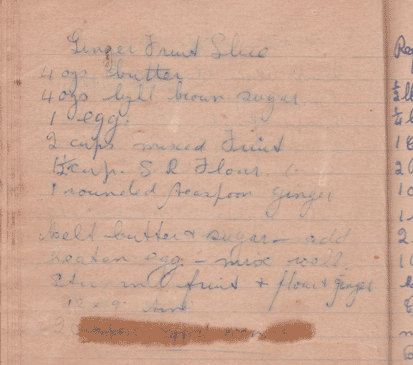 Ginger Fruit Slice
4 ozs butter
4 ozs light brown sugar
1 egg.
2 cups mixed Fruit
1½ cup. S R Flour.
1 rounded teaspoon ginger
Melt butter & sugar - add
beaten egg - mix well.
Stir in fruit + flour & ginger
12 x 9 
2